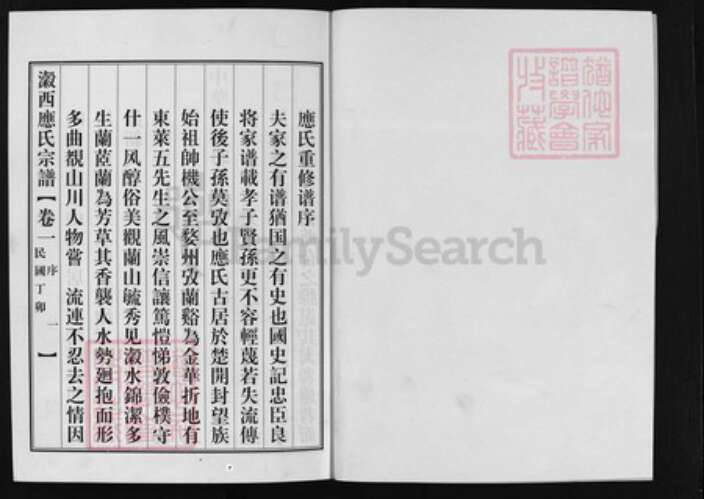 應氏重修谱序
夫家之有谱猶国之有史也國史記忠臣良
将家谱載孝子賢孫更不容輕蔑若失流傳
使後子孫莫攷也應氏古居於楚開封望族
始祖帥機公至婺州攷蘭谿為金華折地有
東萊五先生之風崇信讓篤愷悌敦儉樸守
什一风醇俗美觀蘭山毓秀见瀔水錦潔多
生蘭蓝蘭為芳草其香襲人水勢廻抱而形
多曲覩山川人物嘗 流連不忍去之情因
瀔西應氏宗譜【卷一 民國丁卯 序 一】
FamilySearch
譜學會
收藏